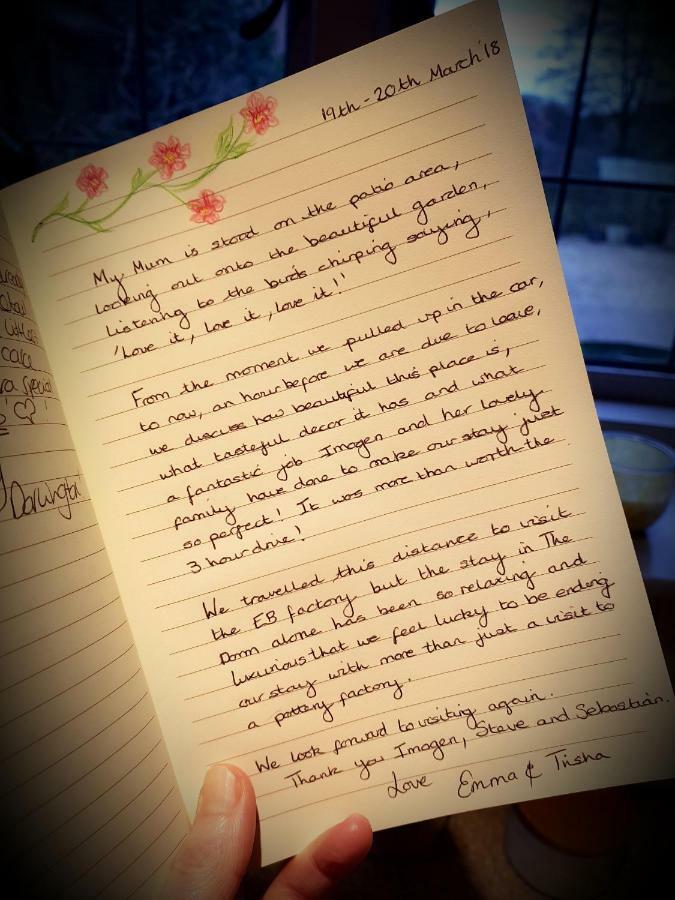 19th - 20th March '18
My Mum is stood on the patio area,
looking out onto the beautiful garden,
listening to the birds chirping saying,
'Love it, love it, love it!'
From the moment we pulled up in the car,
to now, an hour before we are due to leave,
we discuss how beautiful this place is,
what tasteful decor it has and what
a fantastic job Imogen and her lovely
family have done to make our stay just
so perfect! It was more than worth the
3 hour drive!
We travelled this distance to visit
the EB factory but the stay in The
Dorm alone has been so relaxing and
luxurious that we feel lucky to be ending
our stay with more than just a visit to
a pottery factory.
We look forward to visiting again.
Thank you Imogen, Steve and Sebastian.
Love Emma & Trisha
care
special
Darlington